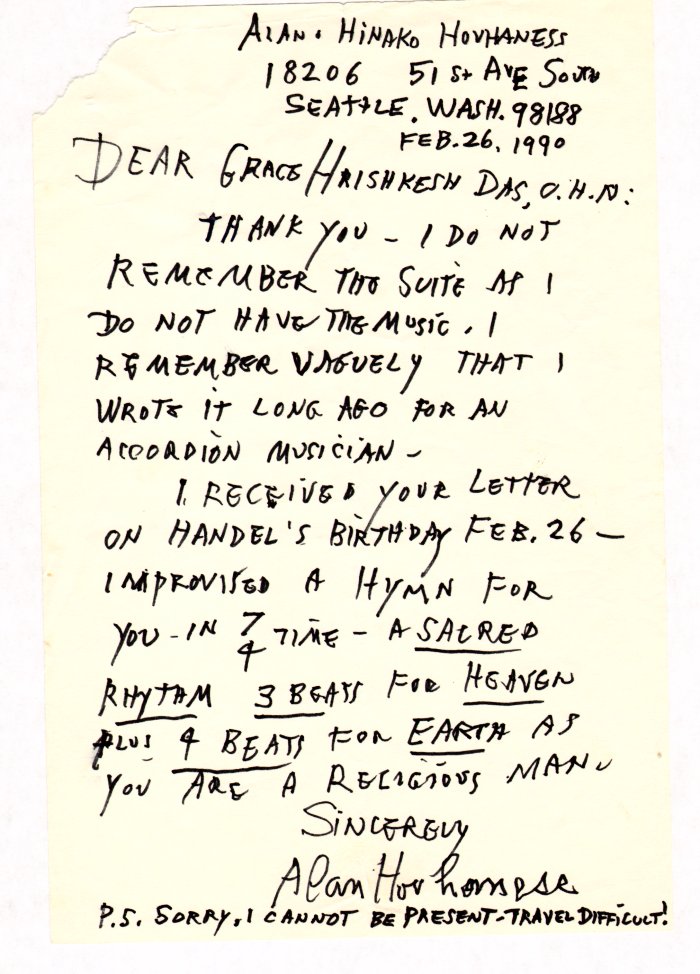 ALAN & HINAKO HOVHANESS
18206 51st AVE SOUTH
SEATTLE, WASH. 98188
FEB. 26, 1990
DEAR GRACE/HRISHKESH DAS, O.H.N:
THANK YOU – I DO NOT
REMEMBER THE SUITE AS I
DO NOT HAVE THE MUSIC. I
REMEMBER VAGUELY THAT I
WROTE IT LONG AGO FOR AN
ACCORDION MUSICIAN –
I RECEIVED YOUR LETTER
ON HANDEL'S BIRTHDAY FEB. 26 –
IMPROVISED A HYMN FOR
YOU – IN 7/4 TIME – A SACRED
RHYTHM 3 BEATS FOR HEAVEN
PLUS 4 BEATS FOR EARTH AS
YOU ARE A RELIGIOUS MAN.
SINCERELY
Alan Hovhaness
P.S. SORRY, I CANNOT BE PRESENT – TRAVEL DIFFICULT!